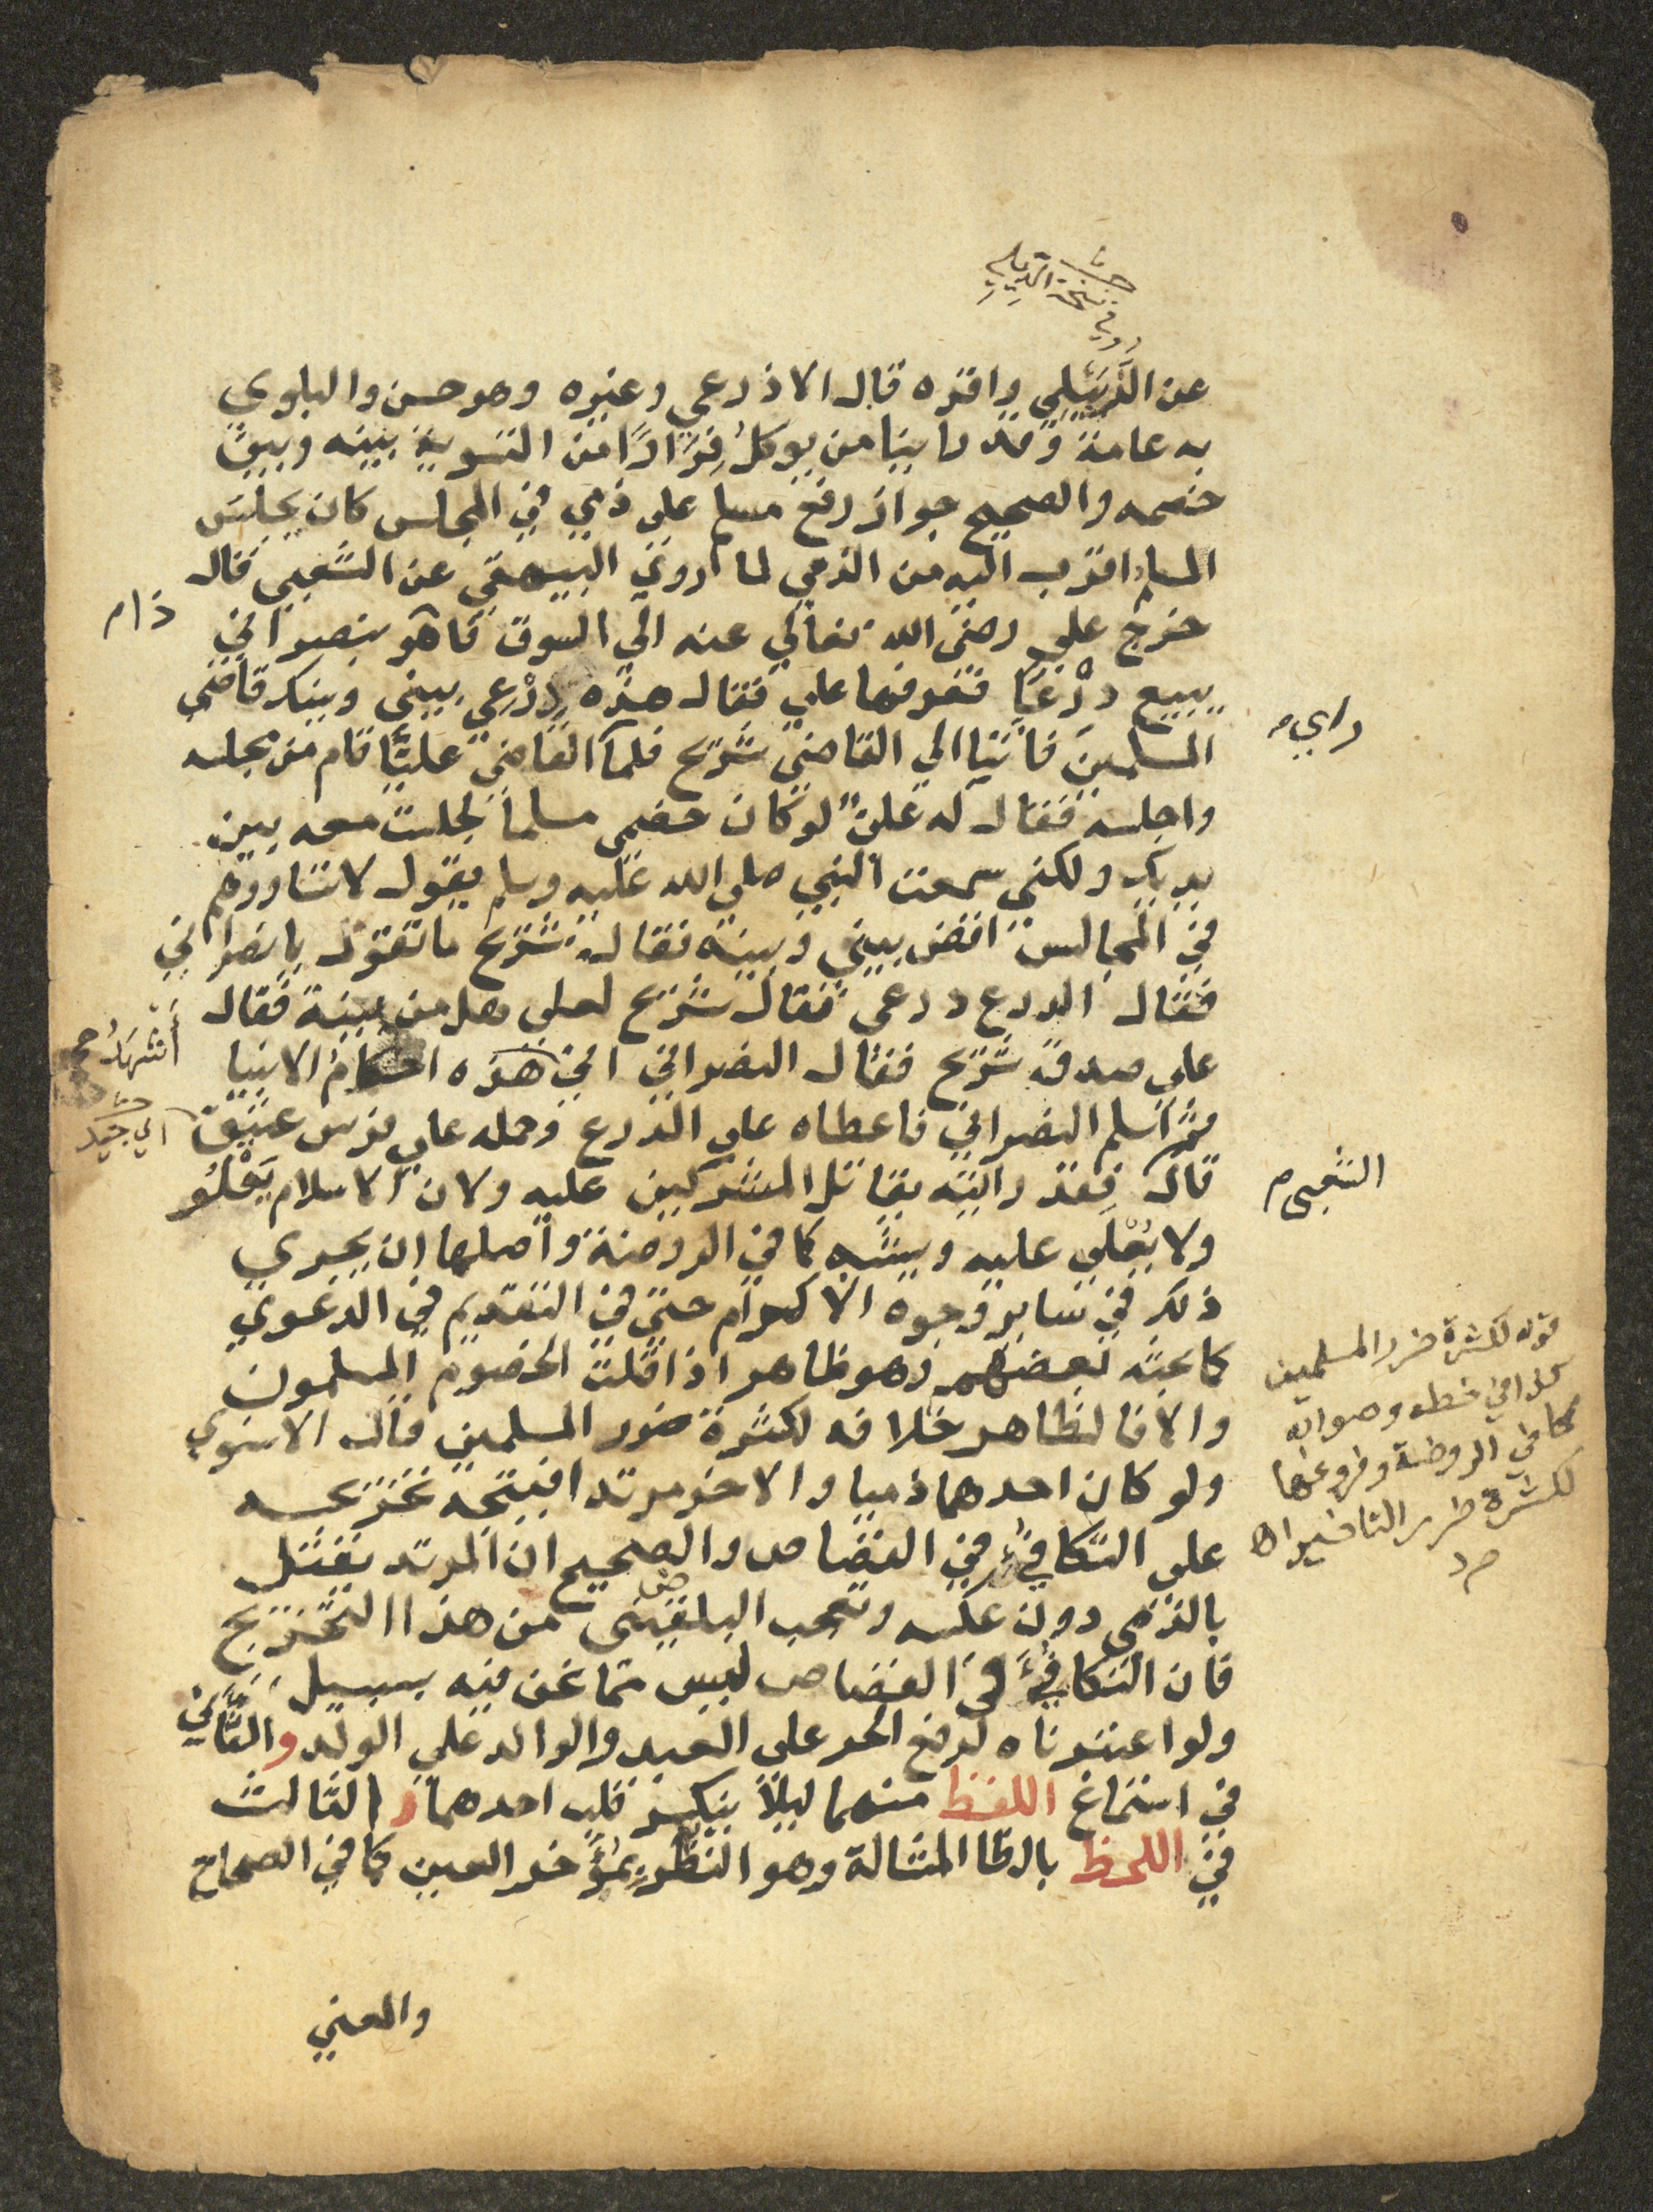 وفي نسخة الدبيلي
عن الزبيلي واقره قال الاذرعي وغيره وهو حسن والبلوي
به عامة وقد راينا من يوكل فرارًا من التسوية بينه وبين
خصمه والصحيح جواز رفع مسلم على ذمي في المجلس كان يجلس
المسلم اقرب اليه من الذمي لما اروي البيهقي عن الشعبي قال
خرج علي رضي الله تعالي عنه الي السوق فاهو بنصراني
ذا م
يبيع درْعًا فعرفها علي فقال هذه دِرْعي بيني وبينك قاضي
المسلمين فاتيا الي القاضي شريح فلما القاضي عليًّا قام من مجلسه
راي م
واجلسه فقال له عليٌّ لو كان خصمي مسلما لجلست معه بين
يديك ولكني سمعت النبي صلي الله عليه وسلم يقول لا تساووهم
في المجالس اقض بيني وبينه فقال شريح ما تقول يا نصراني
فقال الدرع درعي فقال شريح لعلي هل من بينة فقال
علي صدق شريح فقال النصراني اني هذه احكام الانبيا
أَشْهَدُ صح
ثم اسلم النصراني فاعطاه علي الدرع وحمله علي فرس عتيق
اي جيد
قال فقد رايته يقاتل المشركين عليه ولان الاسلام يَعْلُو
الشعبي م
ولا يُعْلَى عليه ويشبه كما في الروضة واصلها ان يجري
ذلك في ساير وجوه الاكرام حتي في التقديم في الدعوي
كما بحثه بعضهم وهو ظاهر اذا قلت الخصوم المسلمون
والا فالظاهر خلافه لكثرة ضرر المسلمين قال الاسنوي
قوله لكثرة ضرر المسلمين
كذا في خطه وصوابه
كما في الروضة وفروعها
لكثرة ضرر التاخير اه
م د
ولو كان احدهما ذميا والاخر مرتدا فيتجه تخريجه
علي التكافيء في القصاص والصحيح ان المرتد يقتل
بالذمي دون عكسه وتعجب البلقيني من هذا التخريج
فان التكافيء في القصاص ليس مما نحن فيه بسبيل
ولو اعتبرناه لرفع الحر علي العبد والوالد علي الولد والثاني
في استماع اللفظ منهما ليلا ينكسر قلب احدهما و الثالث
في اللحظ بالظا المشالة وهو النظر بمُؤَخر العين كما في الصحاح
والمعني